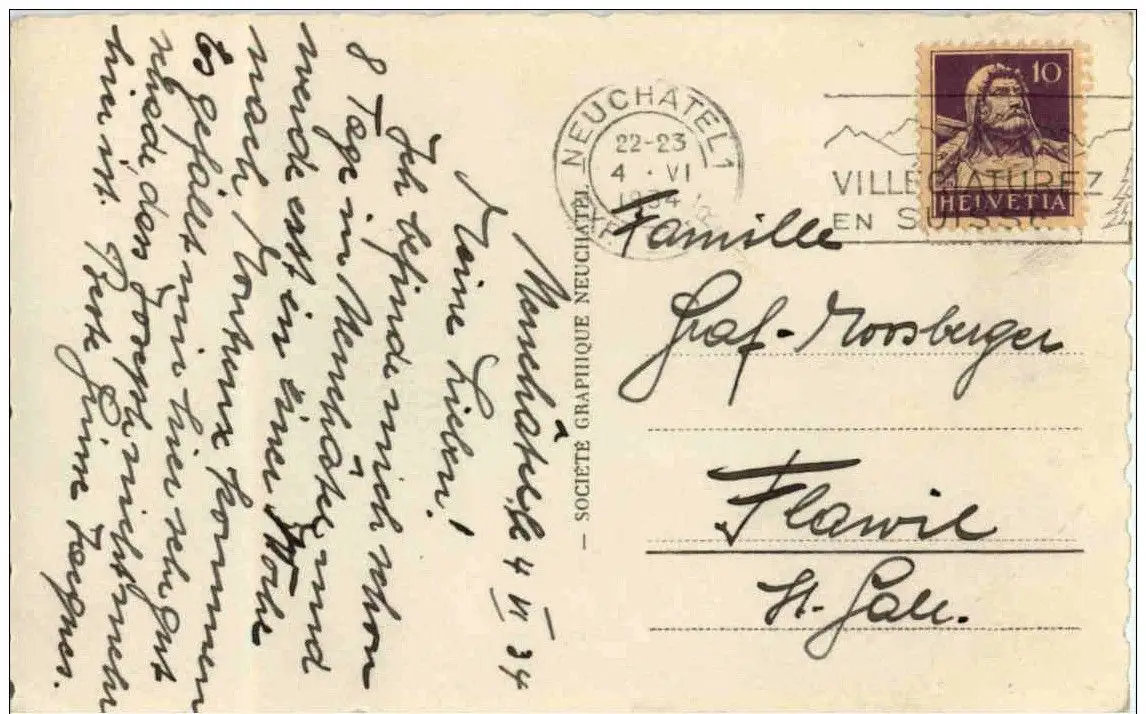 Neuchâtel, 4 VI 34
Meine Lieben!
Ich befinde mich schon
8 Tage in Neuchâtel und
werde erst in einer Woche
nach Montreux kommen
Es gefällt mir hier sehr gut
schade, dass Joseph nicht mehr
hier ist. Beste Grüsse
— SOCIÉTÉ GRAPHIQUE NEUCHÂTEL
NEUCHÂTEL 1
22-23
4 · VI
1934
10
HELVETIA
VILLÉGIATUREZ
EN SUISSE
Famille
Graf-Moosberger
Flawil
St. Gall.